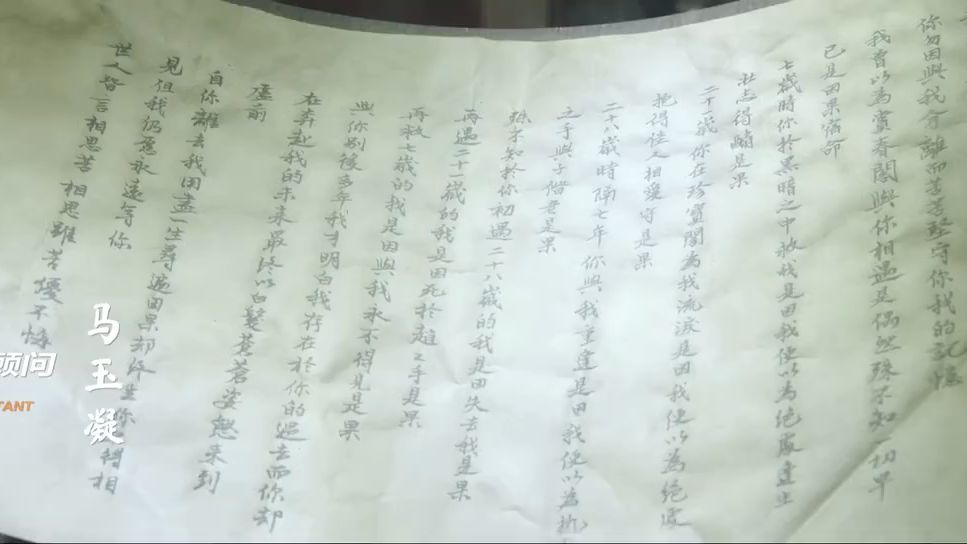 你勿因與我分離而苦苦堅守你我的記憶
我曾以為賓春閣與你相遇是偶然殊不知一切早
已是因果滿命
七歲時你於黑暗之中救我是因我便以為絕處逢生
壯志得酬是果
二十歲你在珍寶閣為我流淚是因我便以為絕處
把得佳人相愛守是果
二十八歲時隔七年你與我重逢是因我便以為執
之手與子偕老是果
殊不知於你初遇二十八歲的我是因失去我是果
再遇二十一歲的我是因死於趙之手是果
再救七歲的我是因與我永不得見是果
與你別後多年我才明白我存在於你的過去而你卻
在奔赴我的未來最終以白髮蒼蒼姿態來到
崖前
自你離去我用盡一生尋遍因果却終
你
得相
見但我仍愿永遠等你
世人皆言相思苦相思雖苦擾不悔
顾问
TANT
马玉凝